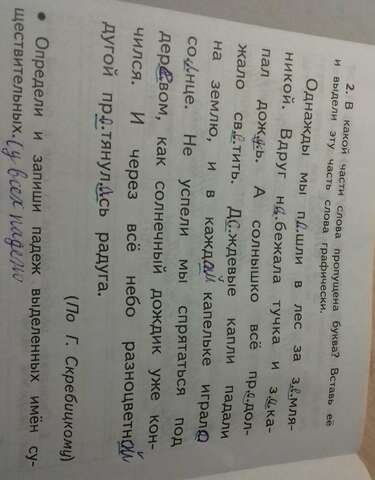 2. В какой части слова пропущена буква? Вставь её
и выдели эту часть слова графически.
Однажды мы пошли в лес за земля-
никой. Вдруг набежала тучка и зака-
пал дождь. А солнышко всё продол-
жало светить. Дождевые капли падали
на землю, и в каждой капельке играло
солнце. Не успели мы спрятаться под
деревом, как солнечный дождик уже кон-
чился. И через всё небо разноцветной
дугой протянулась радуга.
(По Г. Скребицкому)
• Определи и запиши падеж выделенных имён су-
ществительных. (у всех падеж)